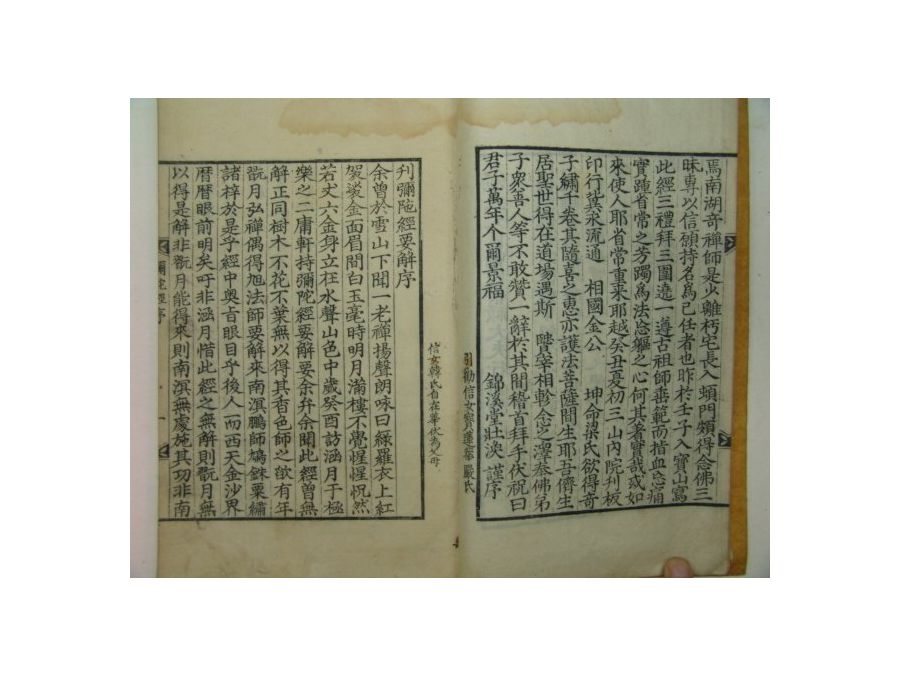 焉南湖奇禪師是少離朽宅長入頓門頗得念佛三
昧專以信願持名爲己任者也昨於壬子入寶山寫
此經三禮拜三圍遶一遵古祖師垂範而指血忘痛
實踵省常之芳躅爲法忘軀之心何其著實哉或如
來使人耶省常重來耶越癸丑夏初三山內院刊板
印行冀永流通 相國金公 坤命梁氏欲得奇
子繡千卷其隨喜之惠亦護法菩薩間生耶吾儕生
居聖世得在道場遇斯 賢宰相軫念之澤奉佛弟
子衆善人等不敢贊一辭於其間稽首拜手伏祝曰
君子萬年介爾景福 錦溪堂壯泱 謹序
引勸信女寶蓮華嚴氏
信女韓氏自在華伏爲父母
刊彌陀經要解序
余曾於雪山下聞一老禪揚聲朗咏曰綠羅衣上紅
袈裟金面眉間白玉毫時明月滿樓不覺惺惺怳然
若丈六金身立在水聲山色中歲癸酉訪涵月于極
樂之二庸軒持彌陀經要解余弁余聞此經曾無
解正同樹木不花不葉無以得其香色師之欲有年
翫月弘禪偶得旭法師要解來南溟鵬師鳩銖粟繡
諸梓於是乎經中奧旨眼目乎後人而西天金沙界
曆曆眼前明矣吁非涵月惜此經之無解則翫月無
以得是解非翫月能得來則南溟無處施其功非南
彌陀經序
一